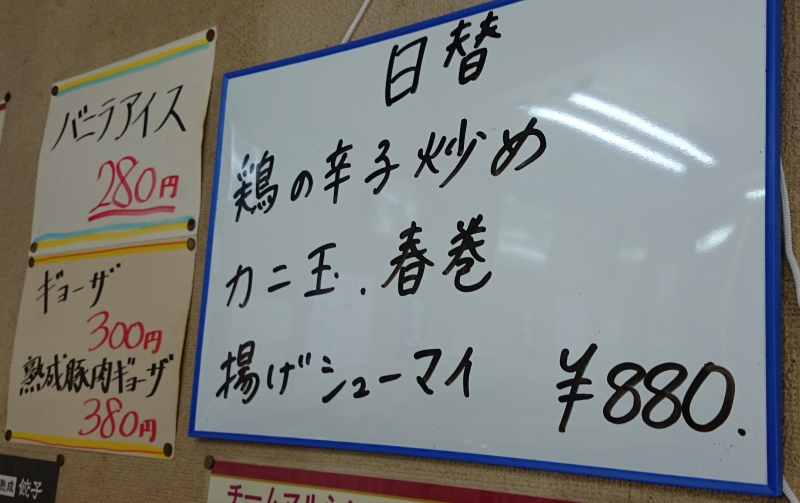 バニラアイス
280円
ギョーザ
300円
熟成豚肉ギョーザ
380円
熟成 餃子
日替
鶏の辛子炒め
カニ玉.春巻
揚げシューマイ ¥880.